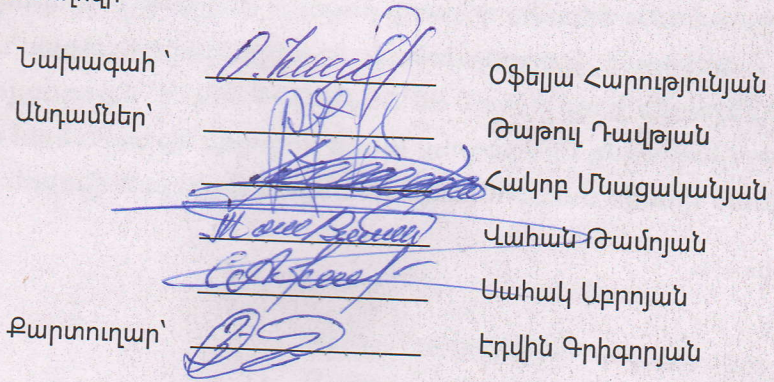 Նախագահ՝ Օֆելյա Հարությունյան
Անդամներ՝ Թաթուլ Դավթյան
Հակոբ Մնացականյան
Վահան Թամոյան
Սահակ Աբրոյան
Քարտուղար՝ Էդվին Գրիգորյան